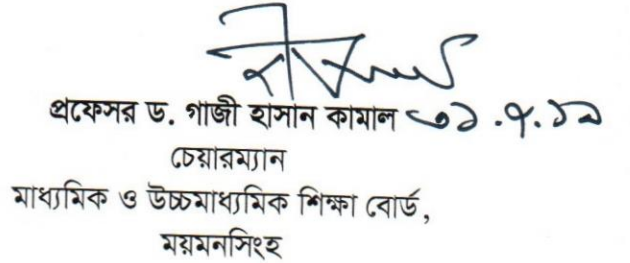 প্রফেসর ড. গাজী হাসান কামাল ৩১.৭.১৯
চেয়ারম্যান
মাধ্যমিক ও উচ্চমাধ্যমিক শিক্ষা বোর্ড,
ময়মনসিংহ